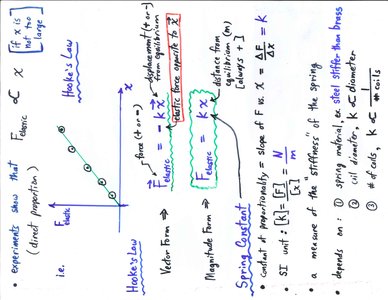 • experiments show that F elastic ∝ x [if x is not too large]
(direct proportion)
i.e.
Hooke's Law
F elastic
x
Hooke's Law
force (+ or −)
displacement (+ or −) from equilibrium
Vector Form ⇒ F⃗ elastic = − k x⃗
elastic force opposite to x⃗
distance from equilibrium (m) [always +]
Magnitude Form ⇒ F elastic = k x
Spring Constant
• constant of proportionality = slope of F vs. x = ΔF/Δx = k
• SI unit: [k] = [F]/[x] = N/m
• a measure of the "stiffness" of the spring
• depends on: ① spring material, ex. steel stiffer than brass
② coil diameter, k ∝ diameter
③ # of coils, k ∝ 1/# coils